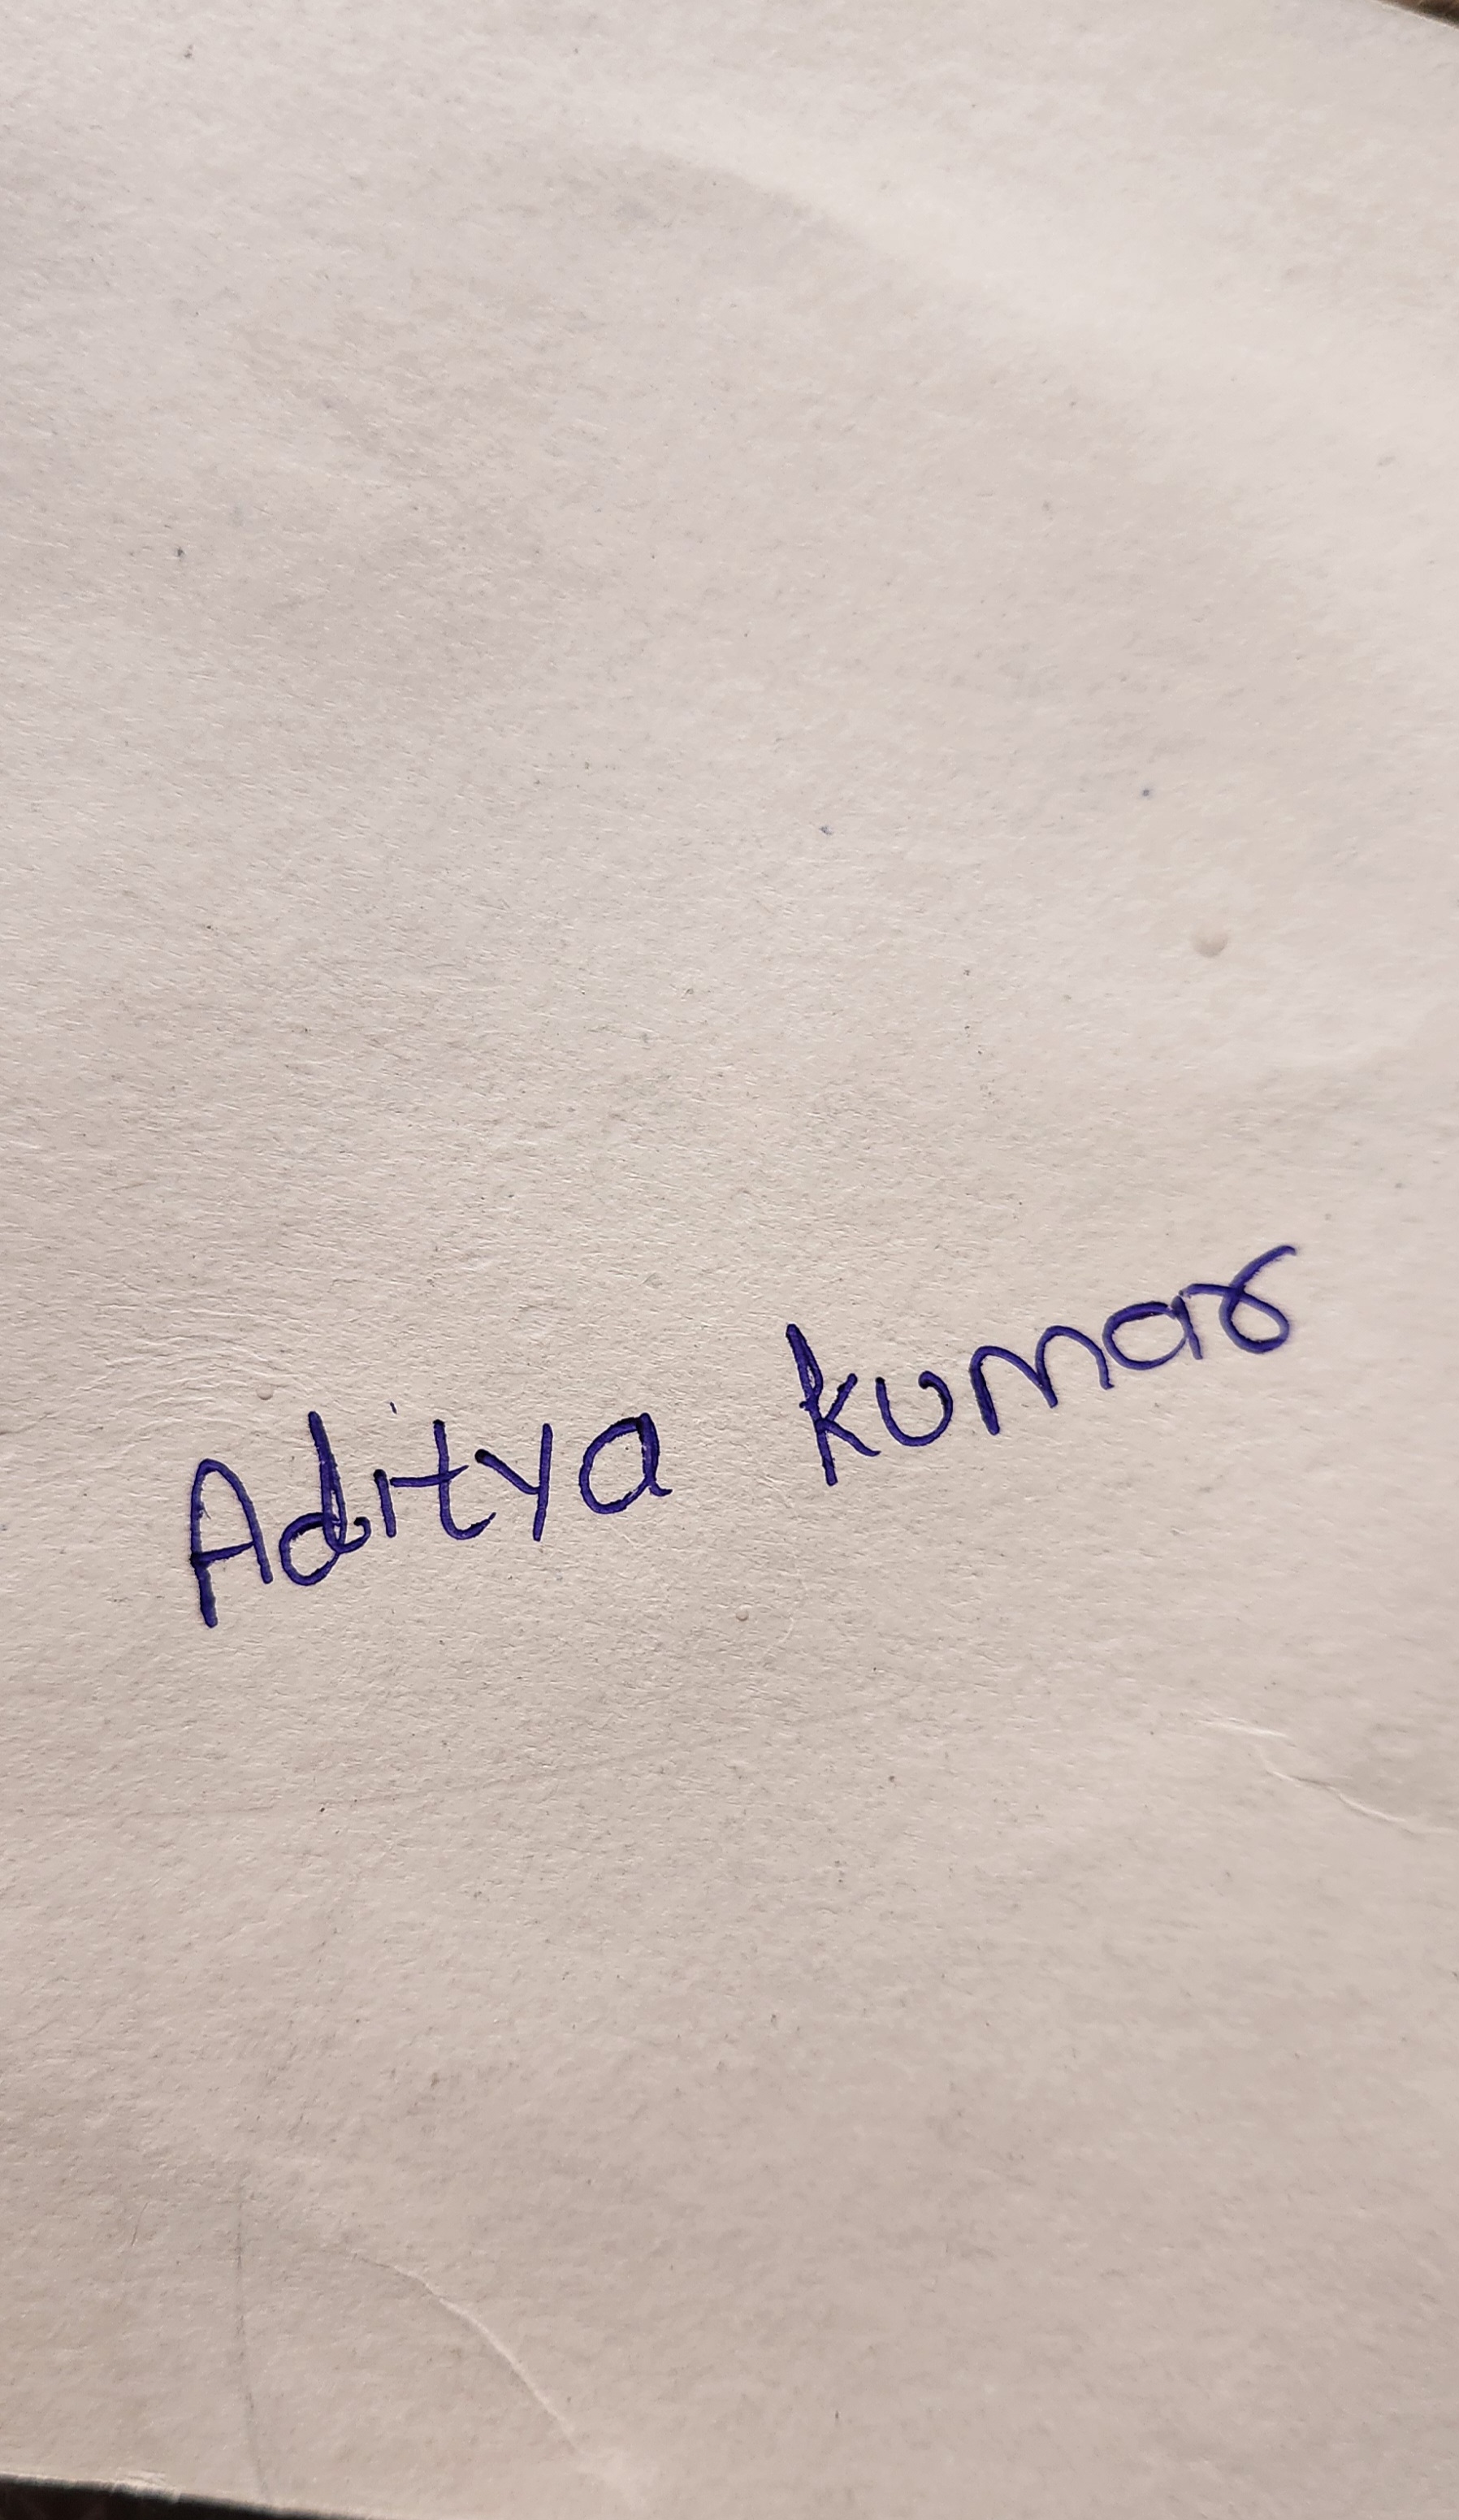 Aditya kumar